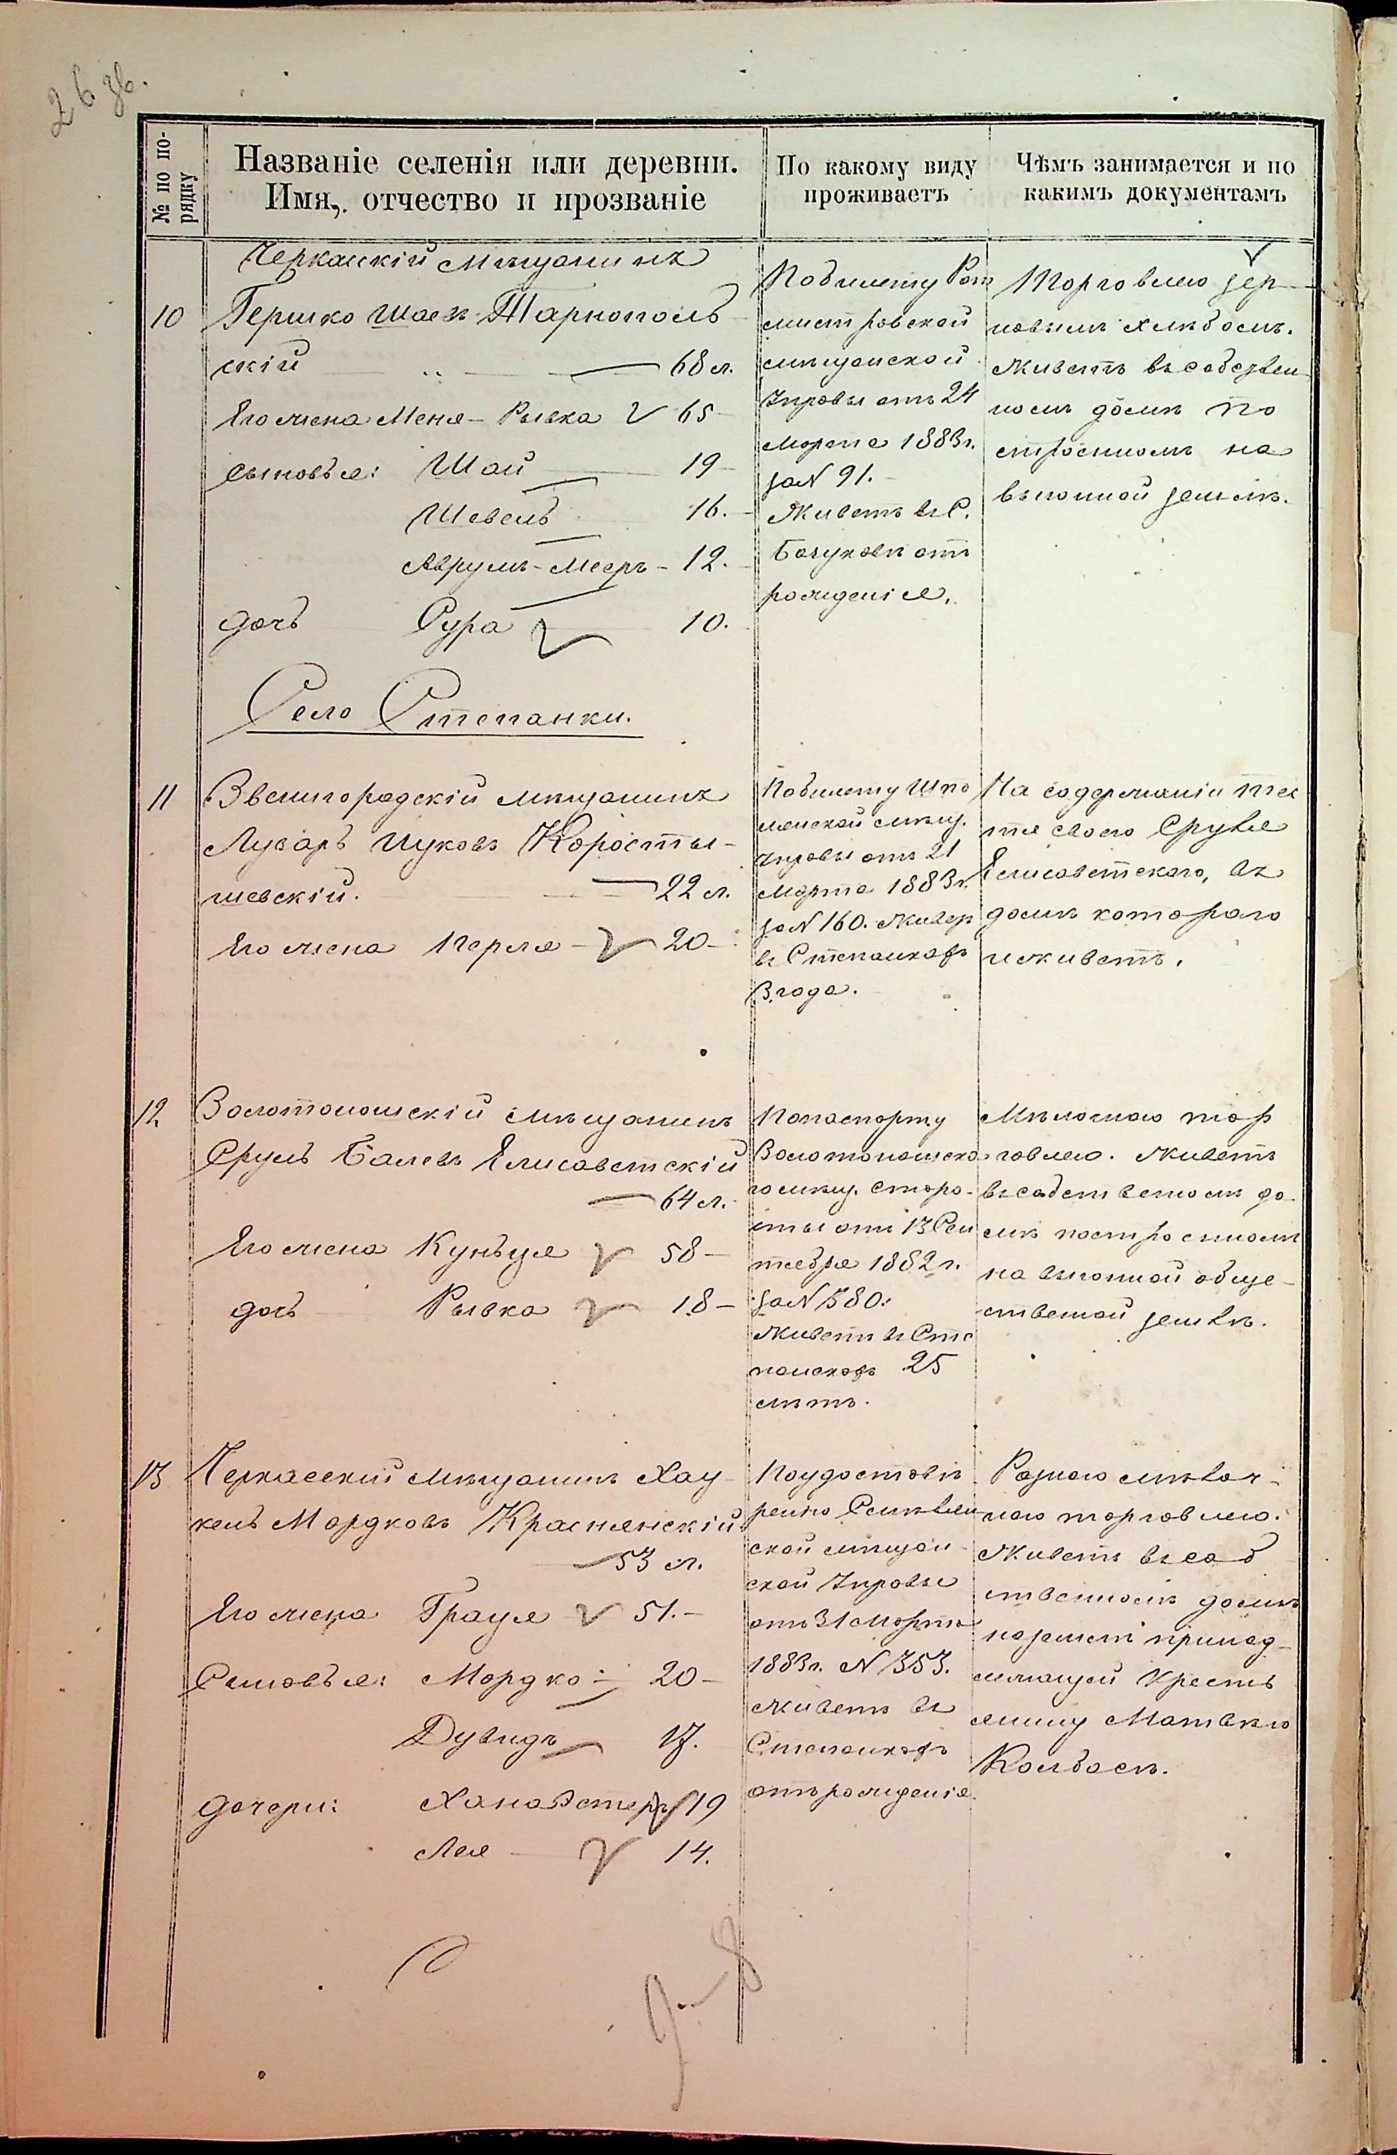 26 зв.
№ по по-
рядку
Названіе селенія или деревни.
Имя, отчество и прозваніе
По какому виду
проживаетъ
Чѣмъ занимается и по
какимъ документамъ
Черкаскій мѣщанинъ
10 Гершко Шаевъ Тарнополь
скій — 68 л.
Его жена Меня-Рывка 65
Сыновья: Шаи 19
Шевель 16.
Аврумъ-Мееръ - 12.
дочь Сура 10.
По билету Рот
мистровской
мѣщанской
Управы отъ 24
Марта 1883 г.
за N 91.
Живетъ въ С.
рожденія.
Торговлею зер
новымъ хлѣбомъ.
Живетъ въ собствен
номъ домѣ по
строенномъ на
выгонной землѣ.
Село Степанки.
11 Звенигородскій мѣщанинъ
Лузарь Ицковъ Коросты-
шевскій. — 22 л.
Его жена Перля — 20
По билету Шпо
лянской мѣщ.
Управы отъ 21
Марта 1883 г.
за N 160. Живетъ
въ Степанкахъ
3 года.
На содержаніи тес
тя своего Сруля
Елисаветскаго, въ
домѣ котораго
и живетъ.
12 Золотоношскій мѣщанинъ
Сруль Балевъ Елисаветскій
— 64 л.
Его жена Куньця 58 —
дочь Рывка 18 —
По паспорту
Золотоношска
го мѣщ. старо-
сты отъ 13 Сен
тября 1882 г.
за N 580.
Живетъ въ Сте
панкахъ 25
лѣтъ.
Мѣлочною тор
говлею. Живетъ
въ собственномъ до-
мѣ построенномъ
на выгонной обще-
ственной землѣ.
13 Черкасскій мѣщанинъ Хау
кель Мордковъ Краснянскій
— 53 л.
Его жена Грауля 51. —
Сыновья: Мордко 20 —
Дувидъ 17.
дочери: Хана Эстеръ 19
Лея 14.
По удостовѣ
ренію Смѣлян
ской мѣщан
ской Управы
отъ 31 Марта
1883 г. N 353.
Живетъ въ
Степанкахъ
отъ рожденія.
Разною мѣлоч-
ною торговлею.
Живетъ въ соб
ственномъ домѣ
на земли принад-
лежащей крестъ
янину Матвѣю
Колбасѣ.